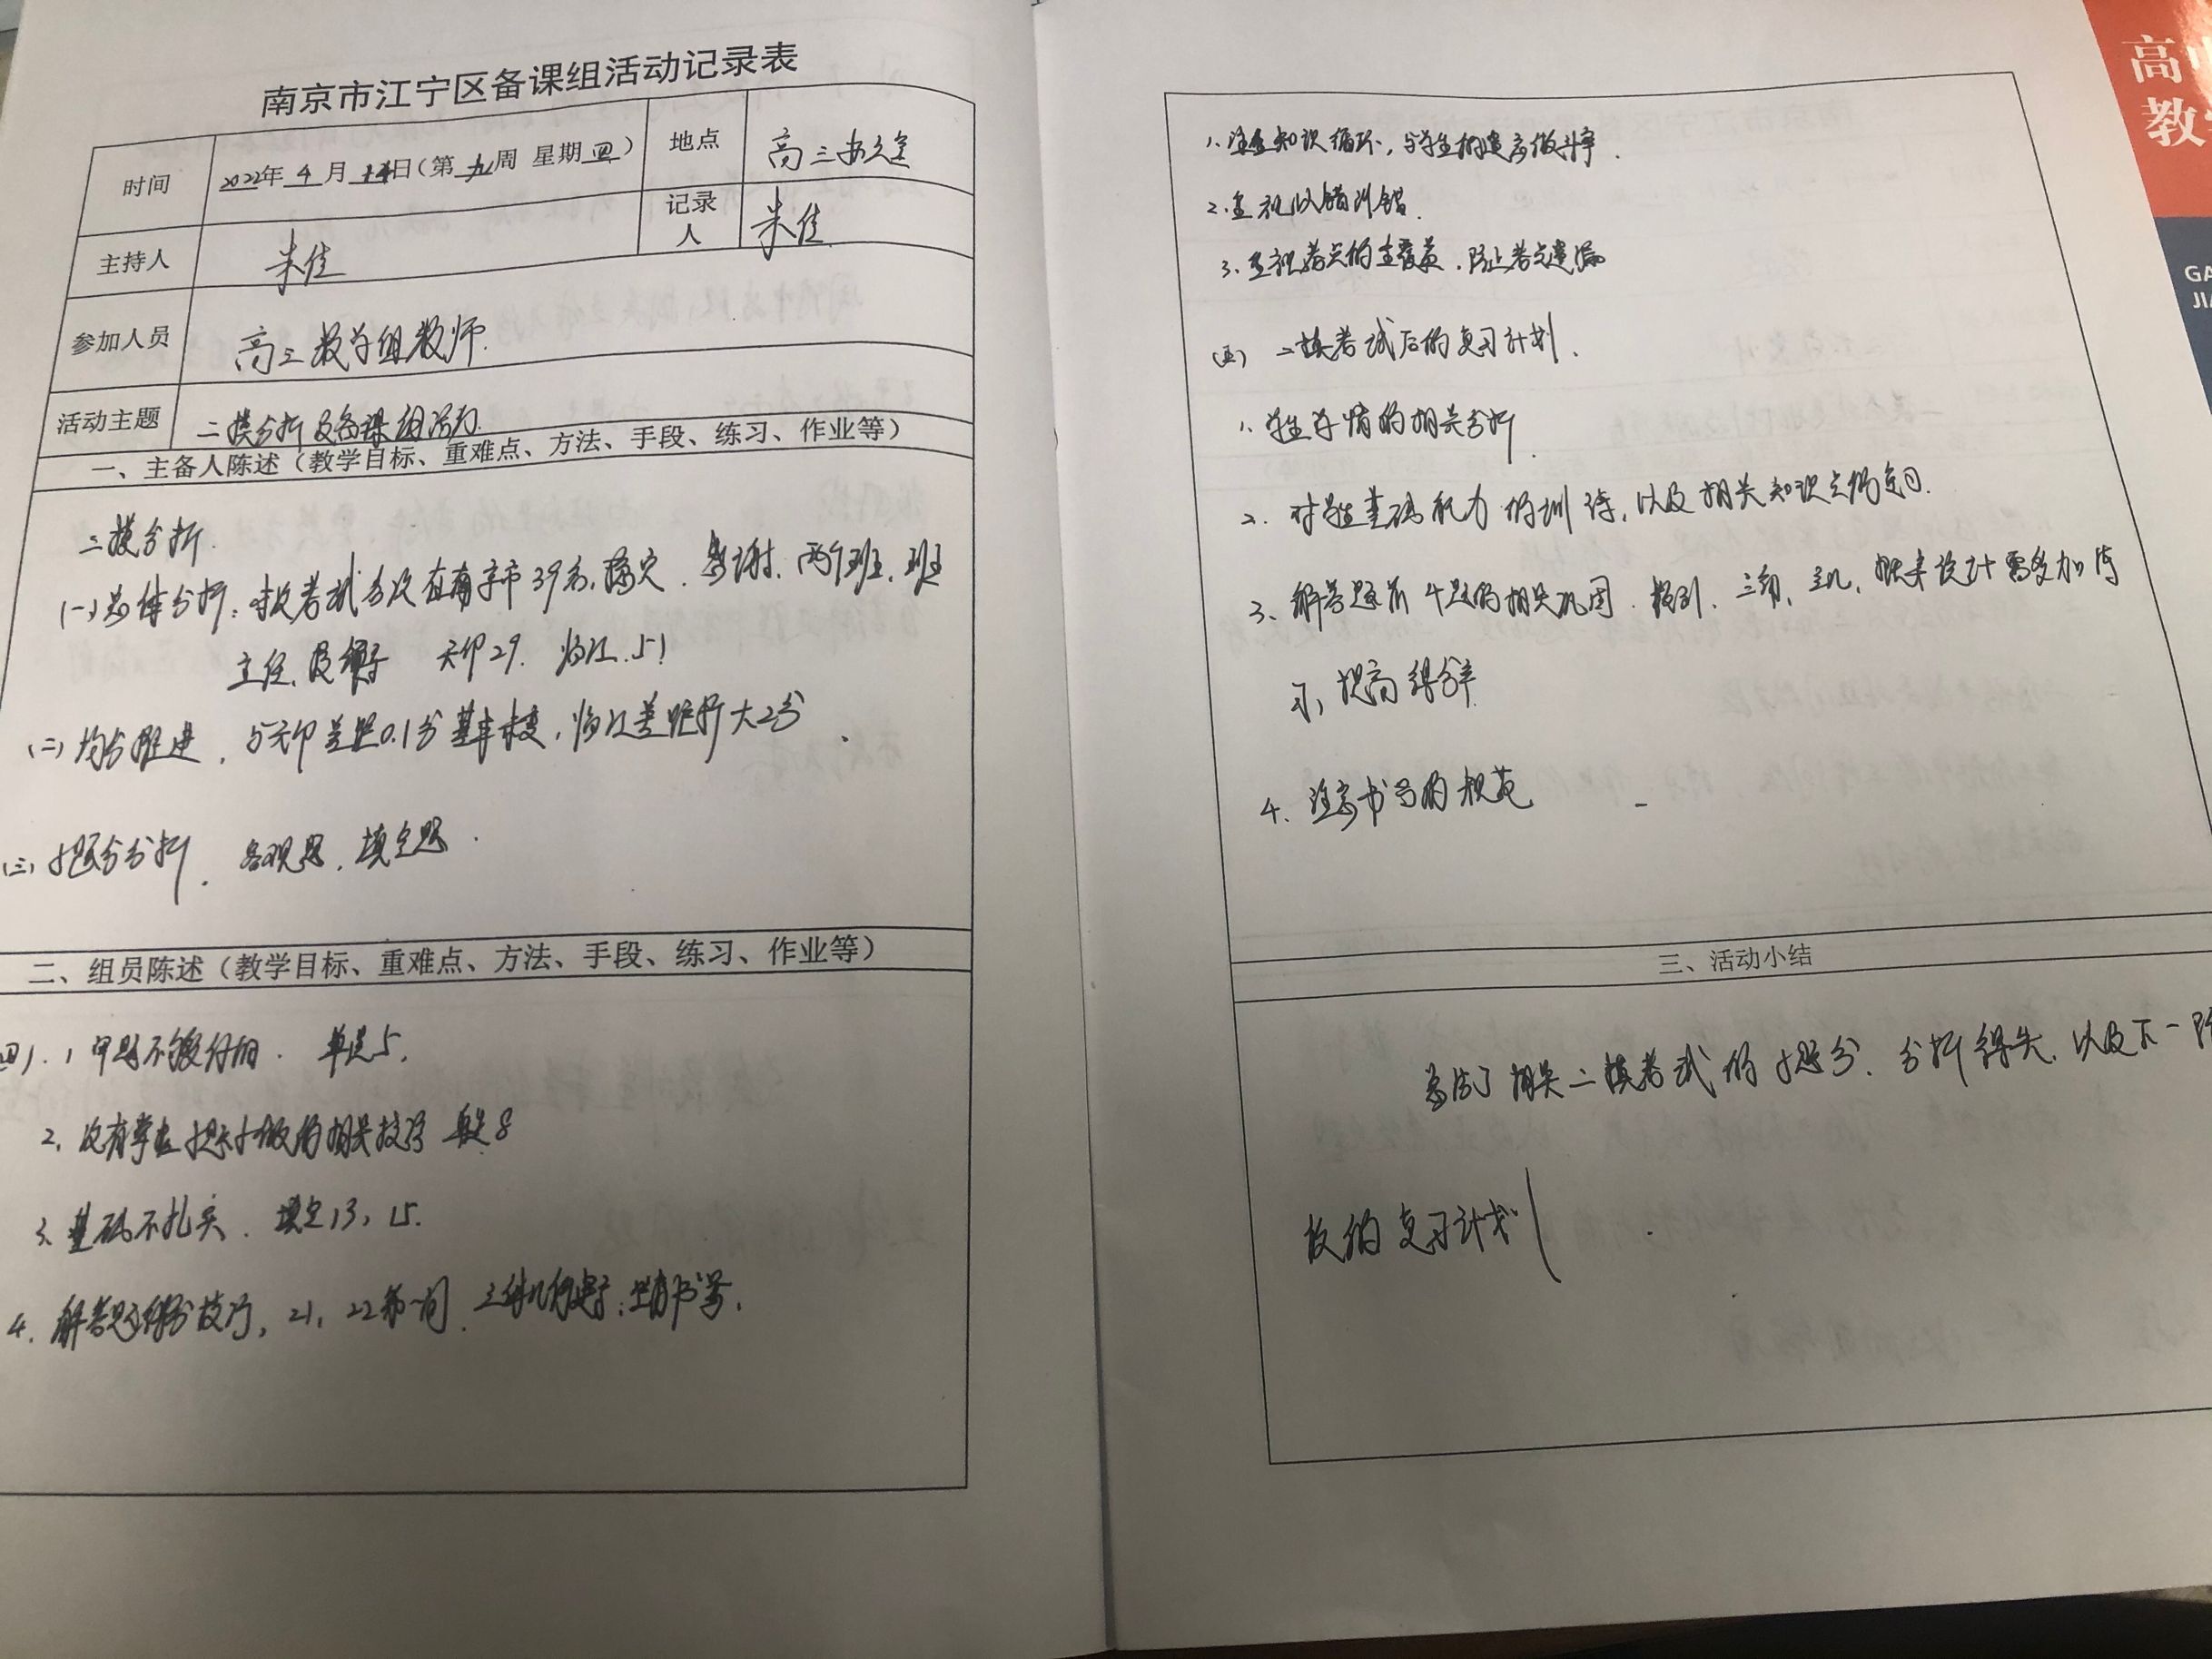 南京市江宁区备课组活动记录表
时间 2022年 4 月 14 日（第 九 周 星期 四） 地点 高三办公室
主持人 朱佳 记录人 朱佳
参加人员 高三数学组教师.
活动主题 二模分析及备课组活动.
一、主备人陈述（教学目标、重难点、方法、手段、练习、作业等）
二模分析.
(一) 总体分析: 考试名次在南京市39名, 稳定. 感谢. 两个班. 班
主任, 天印29. 临江.51
(二) 均分推进, 与天印差距0.1分基本持平, 临江差距扩大2分
(三) 小题分分析. 客观题, 填空题.
二、组员陈述（教学目标、重难点、方法、手段、练习、作业等）
(四). 1 审题不够仔细. 单选5.
2. 没有掌握小题小做的相关技巧 单选8
3. 基础不扎实. 填空13, 15.
4. 解答题得分技巧, 21, 22第一问. 立体几何建系; 书写.
1. 注重知识循环, 与学生的遗忘做斗争.
2. 重视以错训错.
3. 重视考点的全覆盖. 防止考点遗漏
(五) 二模考试后的复习计划.
1. 学生学情的相关分析.
2. 对学生基础能力的训练, 以及相关知识点的复习.
3. 解答题前4题的相关巩固. 数列. 三角, 立几, 概率统计需要加强练
习, 提高得分率.
4. 注意书写的规范
三、活动小结
总结了相关二模考试的小题分. 分析得失. 以及下一阶
段的复习计划
高中
教
GA
JI